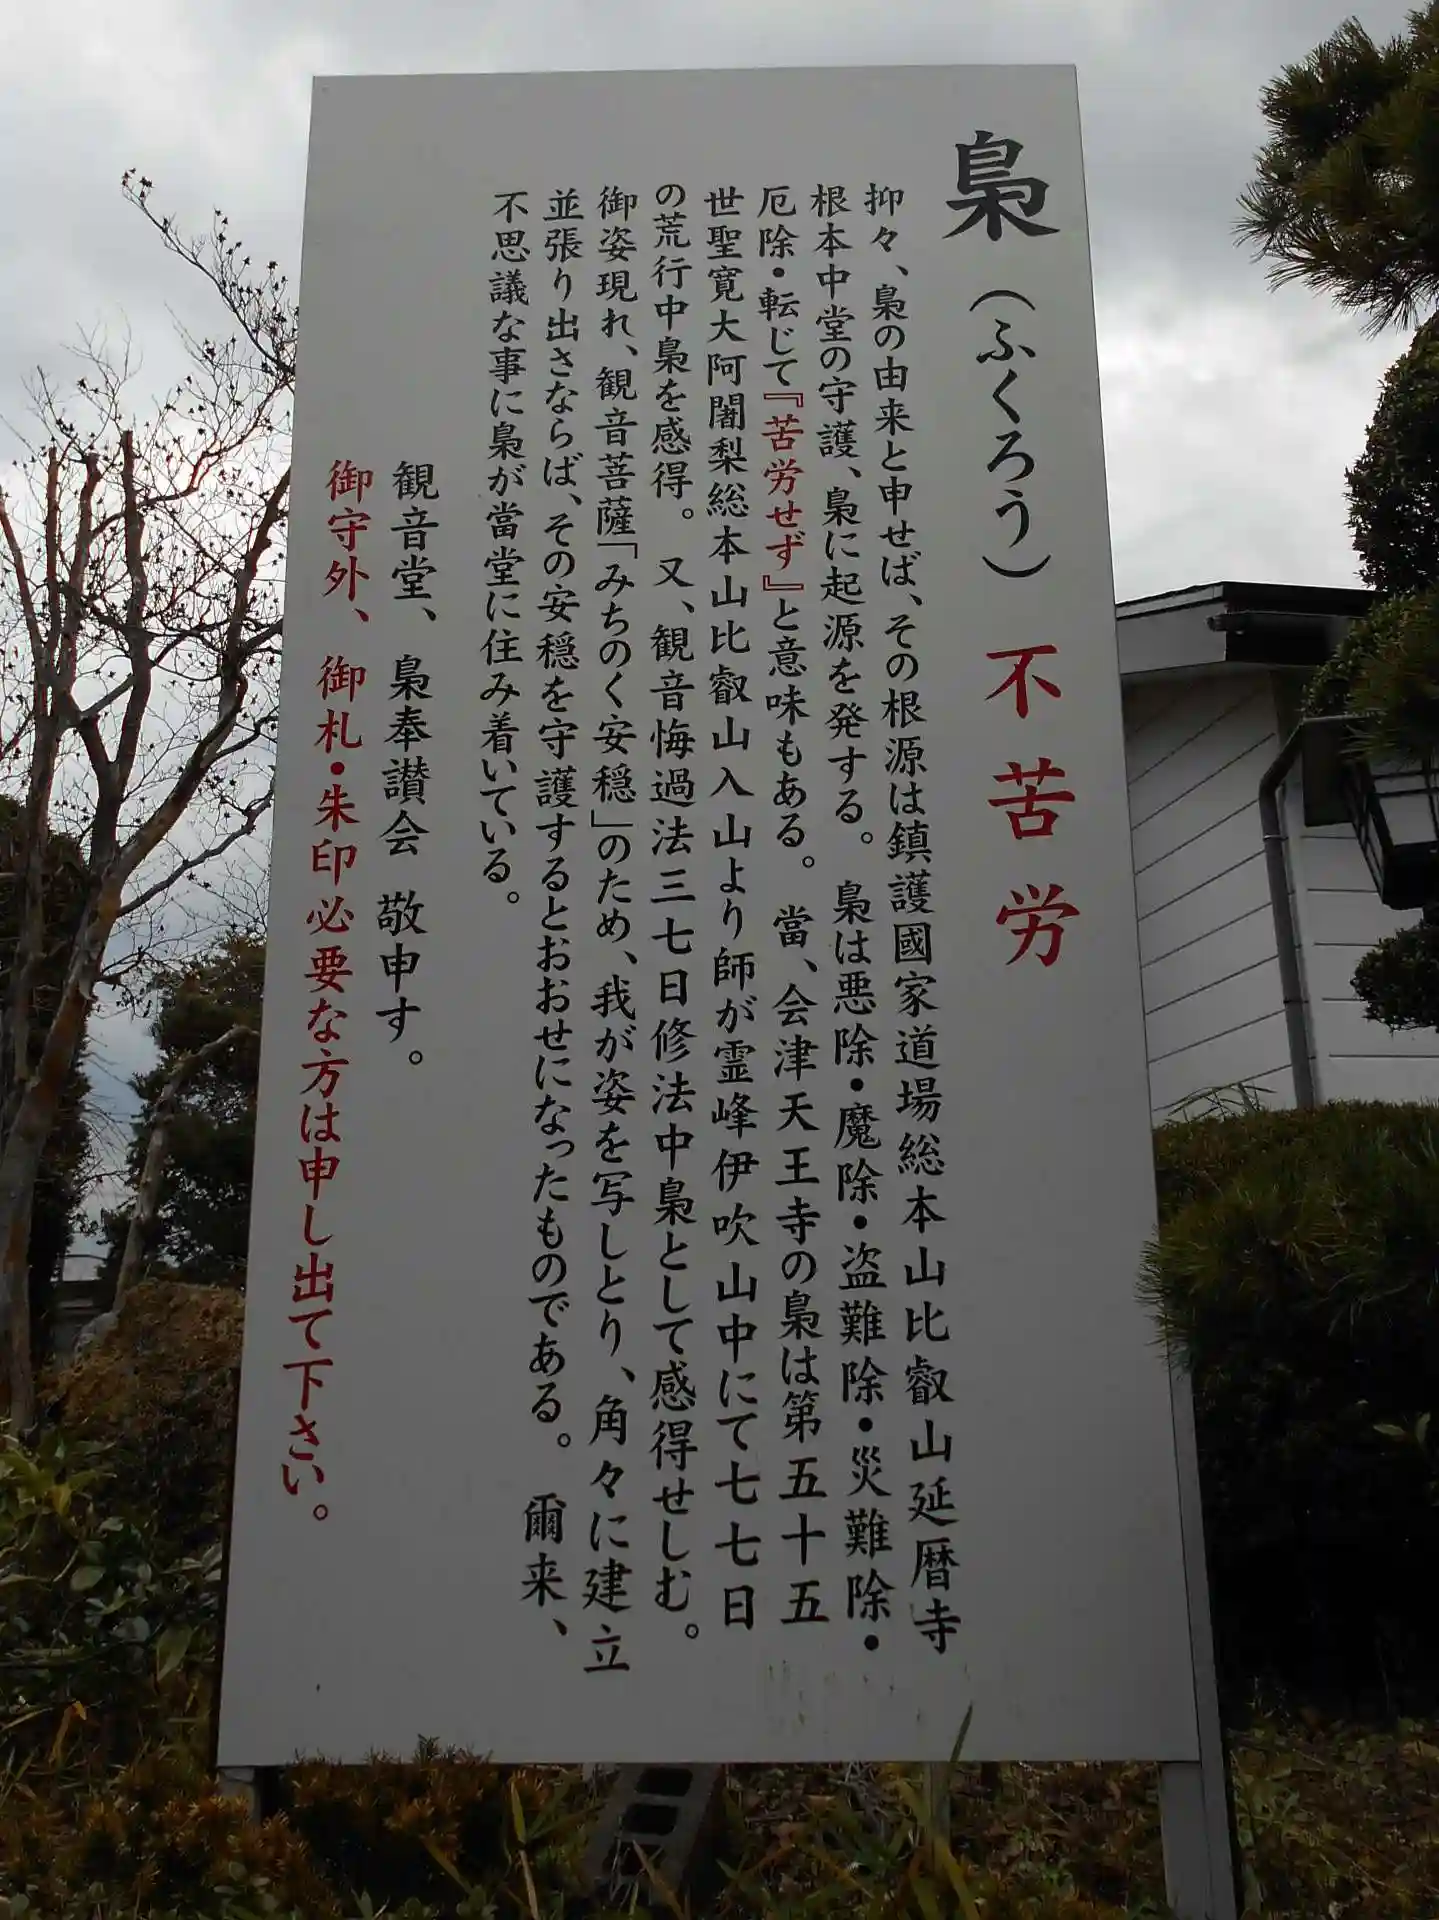 梟（ふくろう）不苦労
抑々、梟の由来と申せば、その根源は鎮護國家道場総本山比叡山延暦寺
根本中堂の守護、梟に起源を発する。梟は悪除・魔除・盗難除・災難除・
厄除・転じて『苦労せず』と意味もある。當、会津天王寺の梟は第五十五
世聖寛大阿闍梨総本山比叡山入山より師が霊峰伊吹山中にて七七日
の荒行中梟を感得。又、観音悔過法三七日修法中梟として感得せしむ。
御姿現れ、観音菩薩「みちのく安穏」のため、我が姿を写しとり、角々に建立
並張り出さならば、その安穏を守護するとおおせになったものである。爾来、
不思議な事に梟が當堂に住み着いている。
観音堂、梟奉讃会 敬申す。
御守外、御札・朱印必要な方は申し出て下さい。